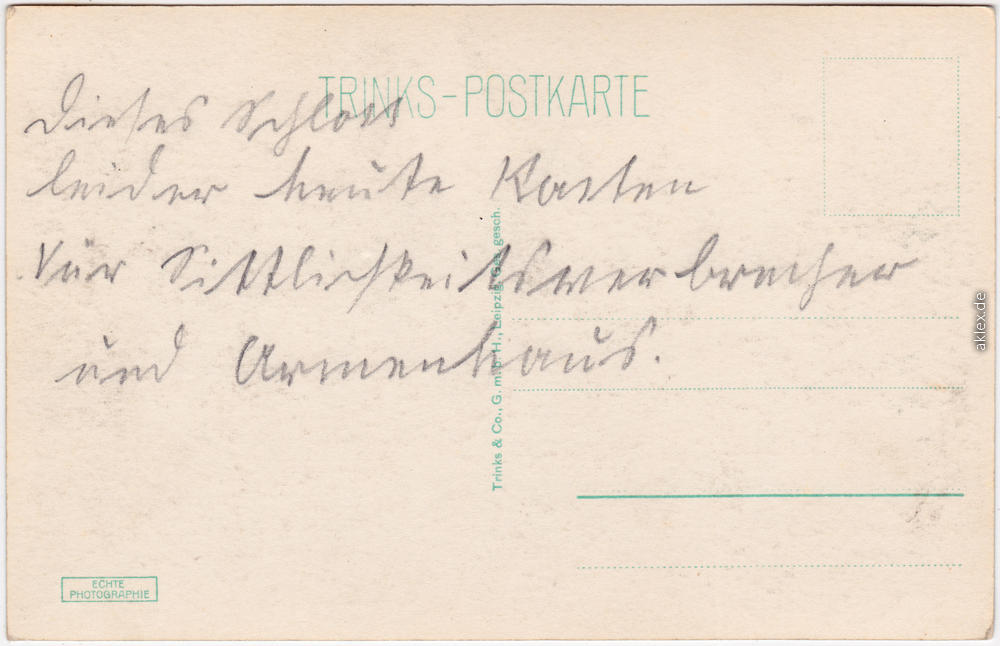 TRINKS-POSTKARTE
Dieses Schloss
leider heute Kasten
für Sittlichkeitsverbrecher
und Armenhaus.
Trinks & Co., G. m. b. H., Leipzig. Ges. gesch.
ECHTE
PHOTOGRAPHIE
aklex.de